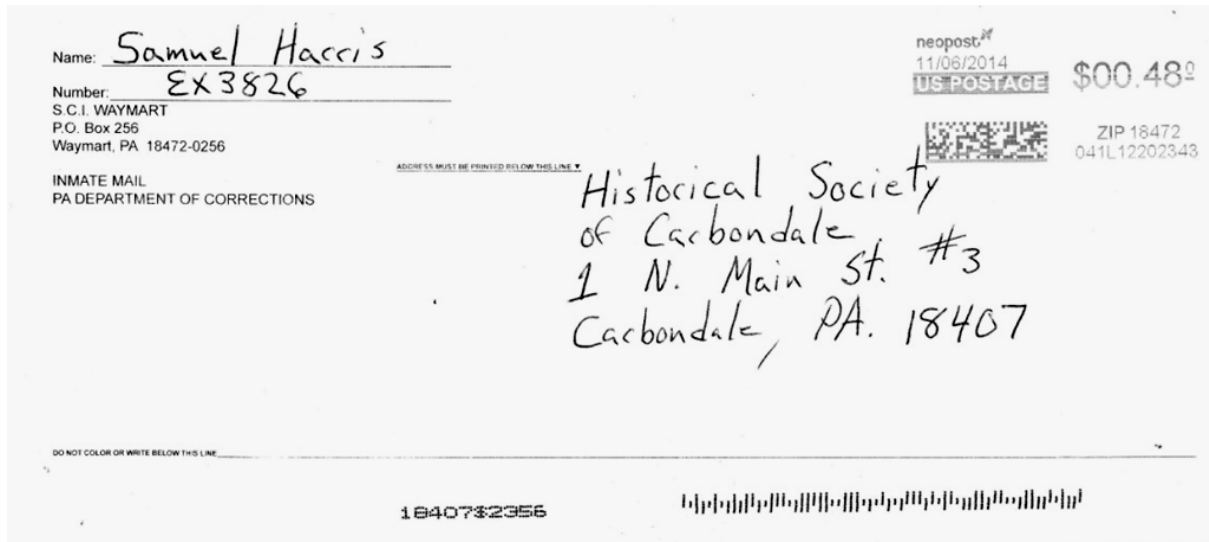 Name: Samuel Harris
Number: EX3826
S.C.I. WAYMART
P.O. Box 256
Waymart, PA 18472-0256
INMATE MAIL
PA DEPARTMENT OF CORRECTIONS
neopost
11/06/2014
US POSTAGE
$00.48⁰
ZIP 18472
041L12202343
ADDRESS MUST BE PRINTED BELOW THIS LINE ▼
Historical Society
of Carbondale
1 N. Main St. #3
Carbondale, PA. 18407
DO NOT COLOR OR WRITE BELOW THIS LINE